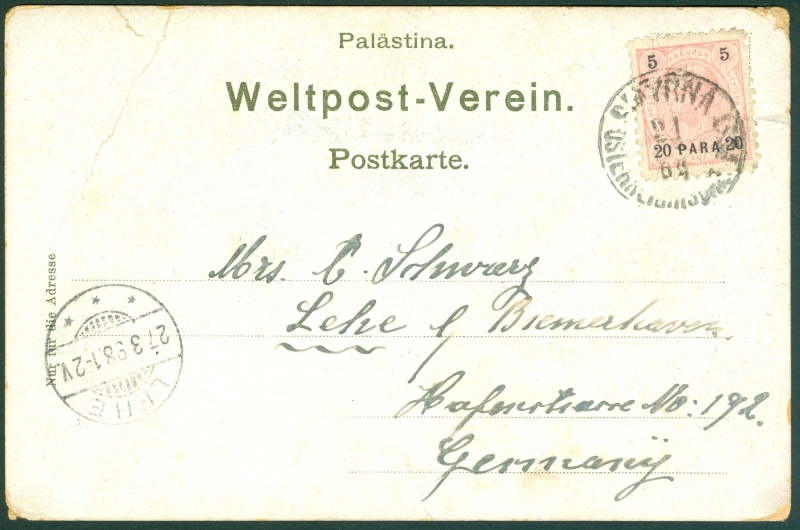 Palästina.
Weltpost-Verein.
Postkarte.
5 KREUZER 5
20 PARA 20
SMYRNA
21
Nur für die Adresse
Mrs. C. Schwarz
Lehe / Bremerhaven
Hafenstrasse No: 192.
Germany
27.3.98.1-2V.
LEHE